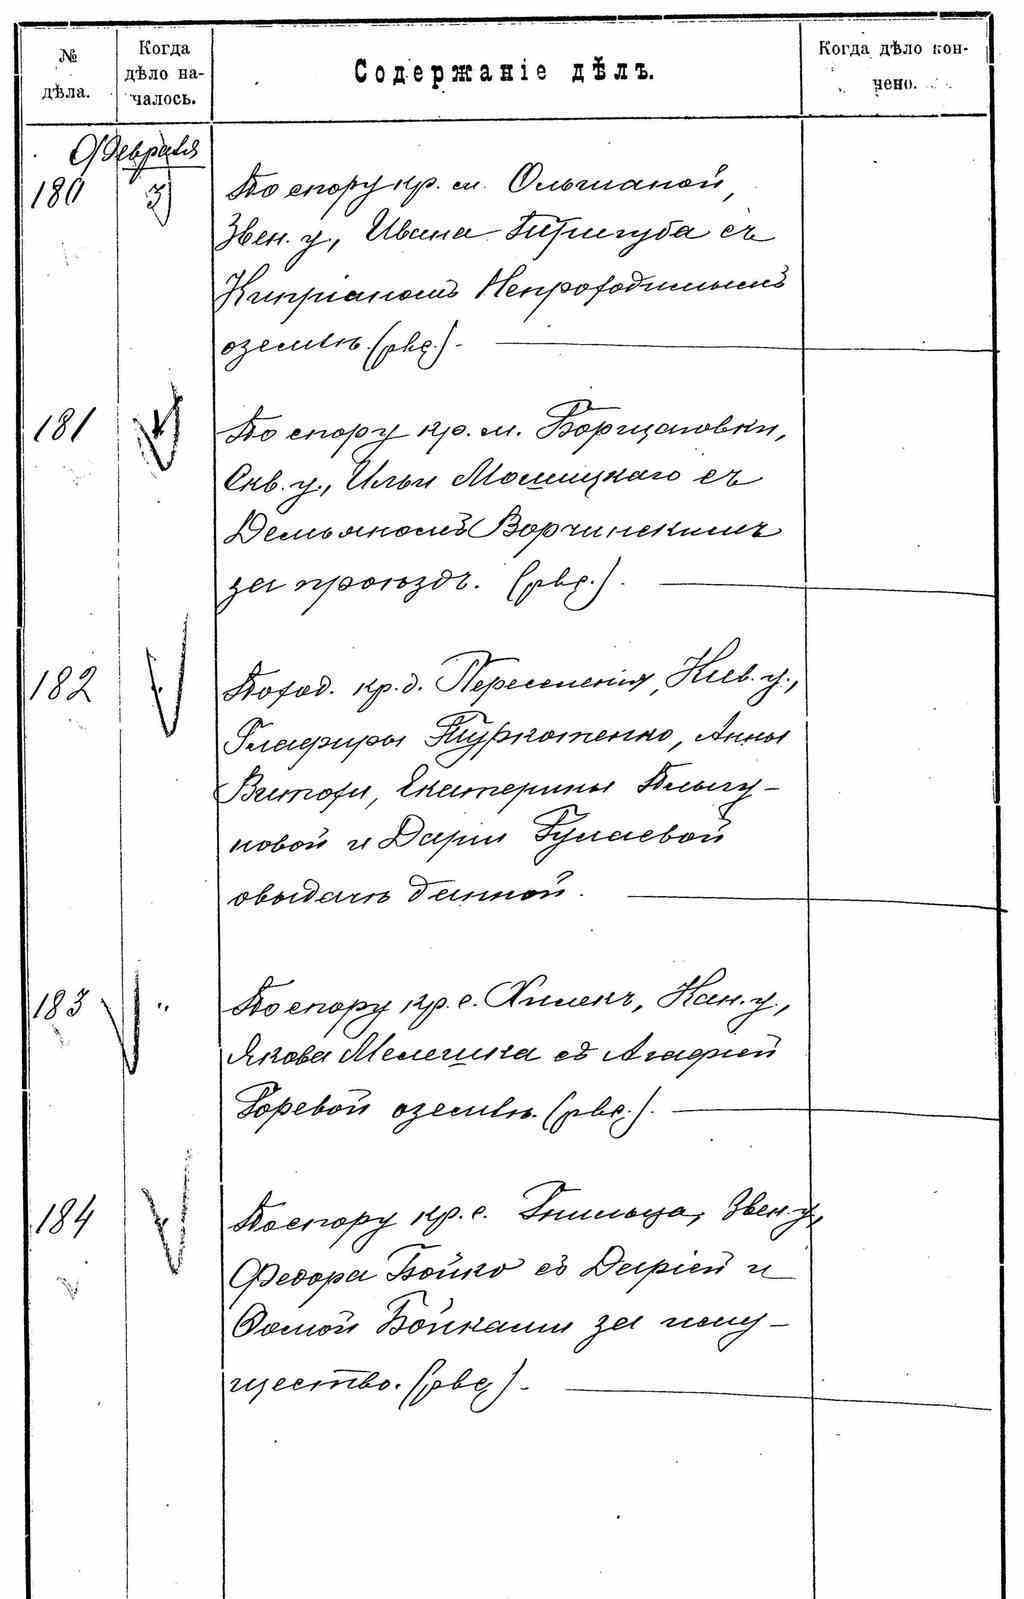 № дѣла.
Когда дѣло на-
чалось.
Содержаніе дѣлъ.
Когда дѣло кон-
чено.
Февраля
180 3 По спору кр. м. Ольшаной,
Звен. у., Ивана Тригуба съ
Кипріаномъ Непроходимымъ
о землѣ. (рвд.).
181 4 По спору кр. м. Борщаговки,
Скв. у., Ильи
съ
Демьяномъ Ворчинскимъ
за проѣздъ. (рвд.).
182 По ход. кр. д. Пересеченія, Кіев. у.,
Глафиры Туркотенко, Анны
Витохи, Екатерины
новой и Даріи Гулаевой
о выдачѣ данной.
183 " По спору кр. с. Хилекъ, Кан. у.,
Якова Мелешка съ Агафіей
Горевой о землѣ. (рвд.).
184 По спору кр. с. Гнильца, Звен. у.,
Федора Бойко съ Даріей и
Фомой Бойками за иму-
щество. (рвд.).